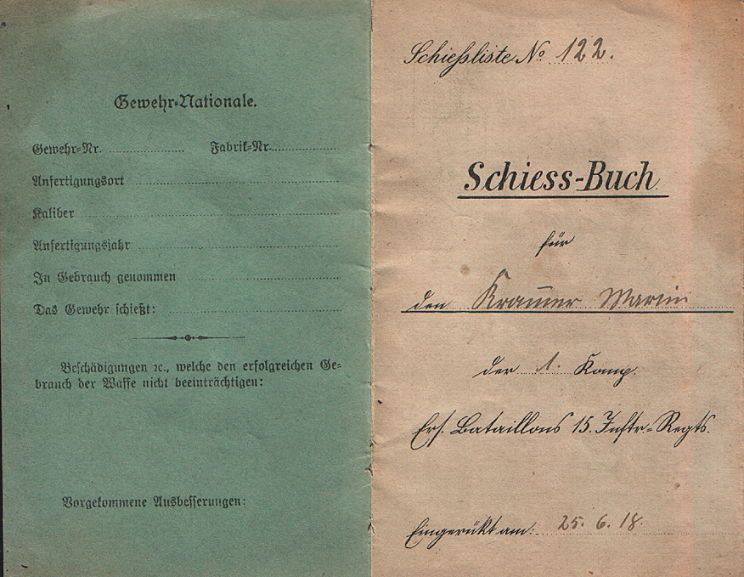 Gewehr-Nationale.
Gewehr-Nr. Fabrik-Nr.
Anfertigungsort
Kaliber
Anfertigungsjahr
In Gebrauch genommen
Das Gewehr schießt:
Beschädigungen ꝛc., welche den erfolgreichen Ge-
brauch der Waffe nicht beeinträchtigen:
Vorgekommene Ausbesserungen:
Schießliste No 122.
Schiess-Buch
für
den Kramer
der 1. Komp.
Ers. Bataillons 15. Inftr-Regts.
Eingerükt am: 25. 6. 18.